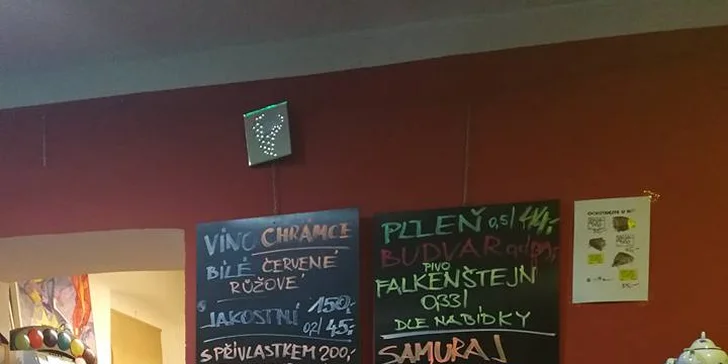 VÍNO CHRÁMCE
BÍLÉ ČERVENÉ
RŮŽOVÉ
JAKOSTNÍ 150,-
0,2l 45,-
S PŘÍVLASTKEM 200,-
PLZEŇ 0,5l 44,-
BUDVAR
PIVO
FALKENŠTEJN
0,33l
DLE NABÍDKY
SAMURAJ